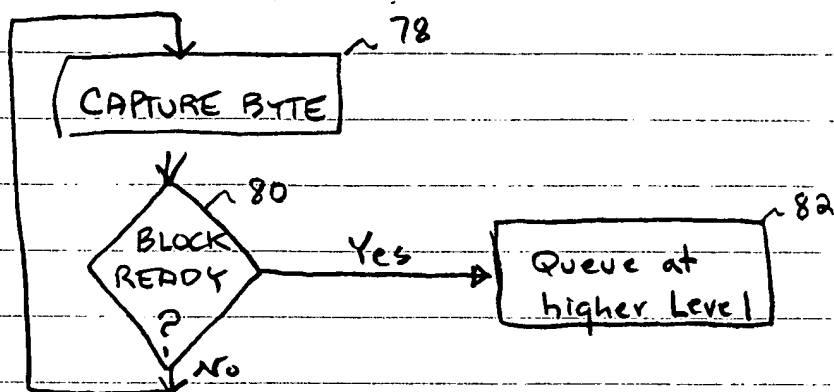 78
CAPTURE BYTE
80
BLOCK
READY
?
Yes
No
82
Queue at
higher Level